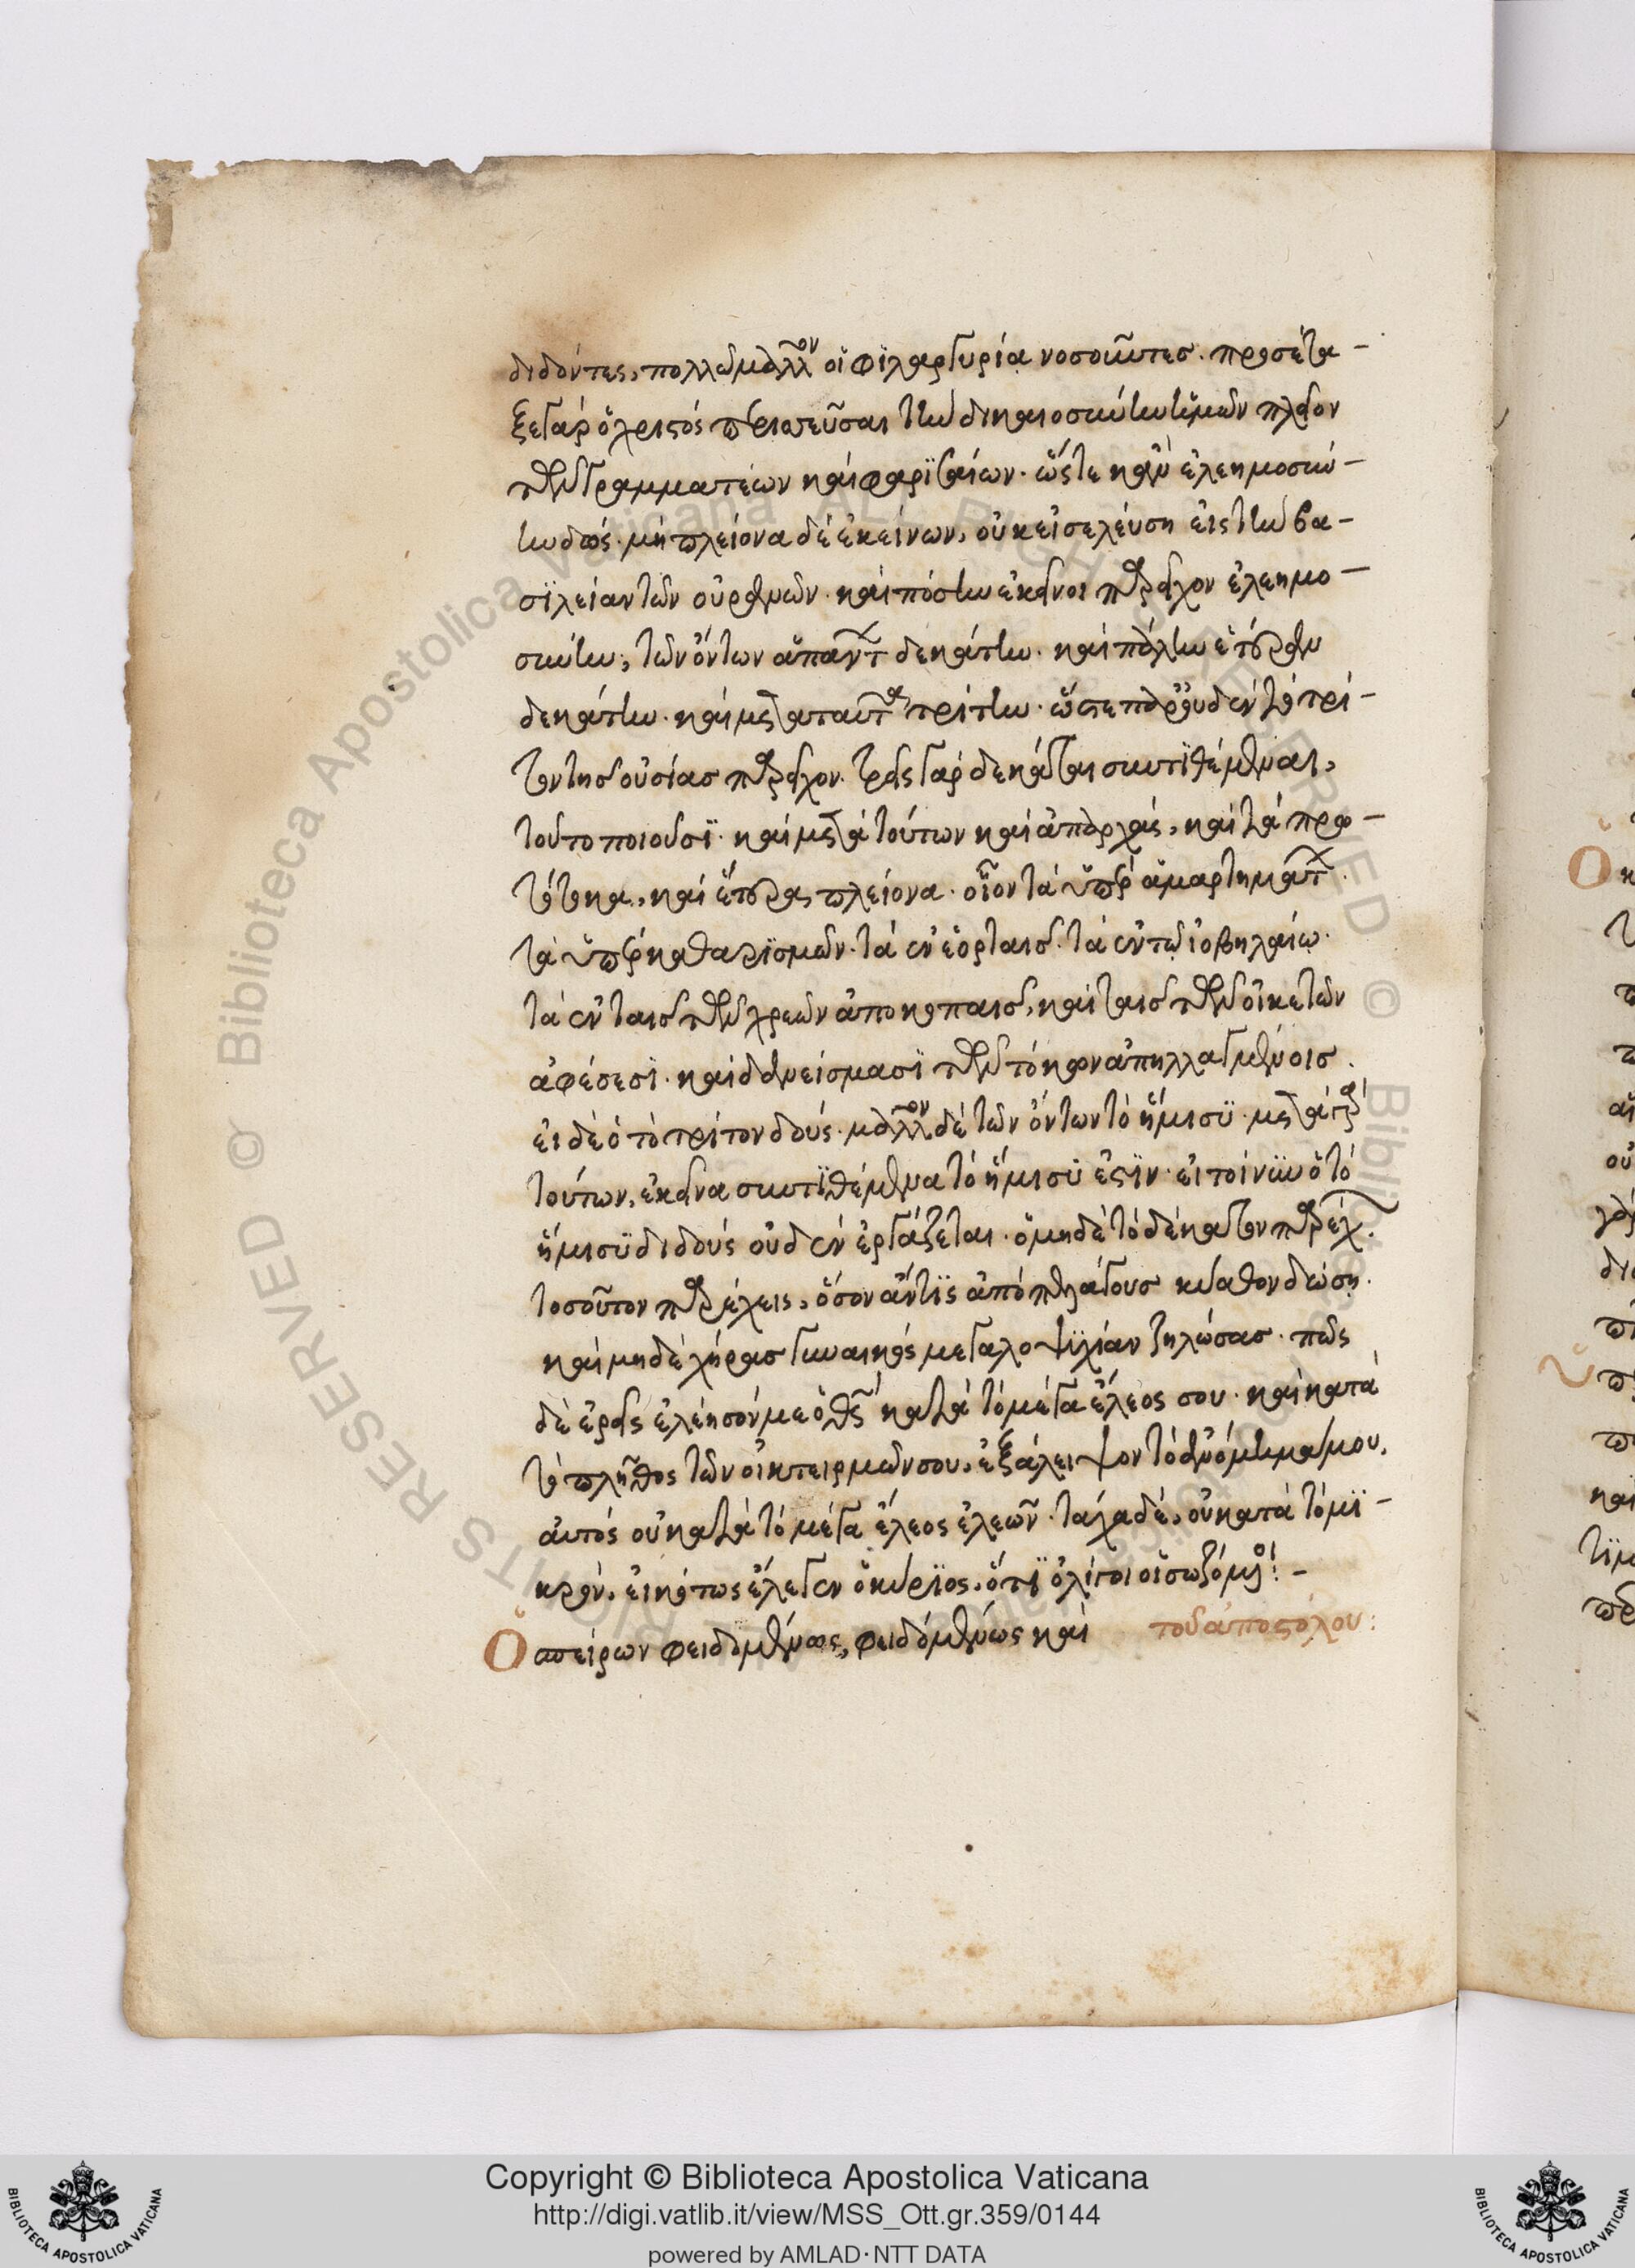 διδόντες, πολλῷ μᾶλλον οἱ φϊλαργυρία νοσοῦντες. προσέτα-
ξε γάρ ὁ χριστός περισσεῦσαι τὴν δικαιοσύνην ἡμῶν πλεῖον
τῶν γραμματέων καὶ φαρϊσαίων. ὥστε κἂν ἐλεημοσύ-
νην δῷς. μὴ πλείονα δὲ ἐκείνων, οὐκ εἰσελεύση εἰς τὴν βα-
σϊλείαν τῶν οὐρανῶν. καὶ πόσην ἐκεῖνοι παρεῖχον ἐλεημο-
σύνην; τῶν ὄντων ἁπάντων δεκάτην. καὶ πάλιν ἑτέραν
δεκάτην. καὶ μετὰ ταῦτα τρίτην. ὥστε παρ' οὐδὲν τὸ τρί-
τον τῆς οὐσίας παρεῖχον. τρεῖς γὰρ δεκάται συντϊθέμεναι,
τοῦτο ποιοῦσϊ. καὶ μετὰ τούτων καὶ ἀπαρχάς, καὶ τὰ πρω-
τότοκα, καὶ ἕτερα πλείονα. οἷον τὰ ὑπὲρ ἁμαρτημάτων.
τὰ ὑπὲρ καθαρϊσμῶν. τὰ ἐν ἑορταῖς. τὰ ἐν τῷ ἰοβηλαίῳ.
τὰ ἐν ταῖς τῶν χρεῶν ἀποκοπαῖς, καὶ ταῖς τῶν οἰκετῶν
ἀφέσεσϊ. καὶ δανείσμασϊ τῶν τόκων ἀπηλλαγμένοις.
εἰ δὲ ὁ τὸ τρίτον δούς. μᾶλλον δὲ τῶν ὄντων τὸ ἥμισϋ. μετὰ γὰρ
τούτων, ἐκεῖνα συντϊθέμενα τὸ ἥμισϋ ἐστϊν. εἰ τοίνϋν ὁ τὸ
ἥμισϋ διδοὺς οὐδὲν ἐργάζεται. ὁ μηδὲ τὸ δέκατον παρέχων.
τοσοῦτον παρέχεις, ὅσον ἄν τϊς ἀπὸ πελάγους κύαθον δώση.
καὶ μηδὲ χήρας γυναικὸς μεγαλοψϊχίαν ζηλώσας. πῶς
δὲ ἐρεῖς ἐλέησόν με ὁ θς κατὰ τὸ μέγα ἔλεος σου. καὶ κατὰ
τὸ πλῆθος τῶν οἰκτειρμῶν σου, ἐξάλειψον τὸ ἀνόμημά μου,
αὐτὸς οὐ κατὰ τὸ μέγα ἔλεος ἐλεῶν. τάχα δὲ, οὐ κατὰ τὸ μϊ-
κρόν. εἰκότως ἔλεγεν ὁ κύρϊος, ὅτϊ ὀλίγοι οἱ σωζόμενοι: -
τοῦ ἀποστόλου:
Ὁ σπείρων φειδομένως, φειδομένως καὶ
Copyright © Biblioteca Apostolica Vaticana
http://digi.vatlib.it/view/MSS_Ott.gr.359/0144
powered by AMLAD·NTT DATA